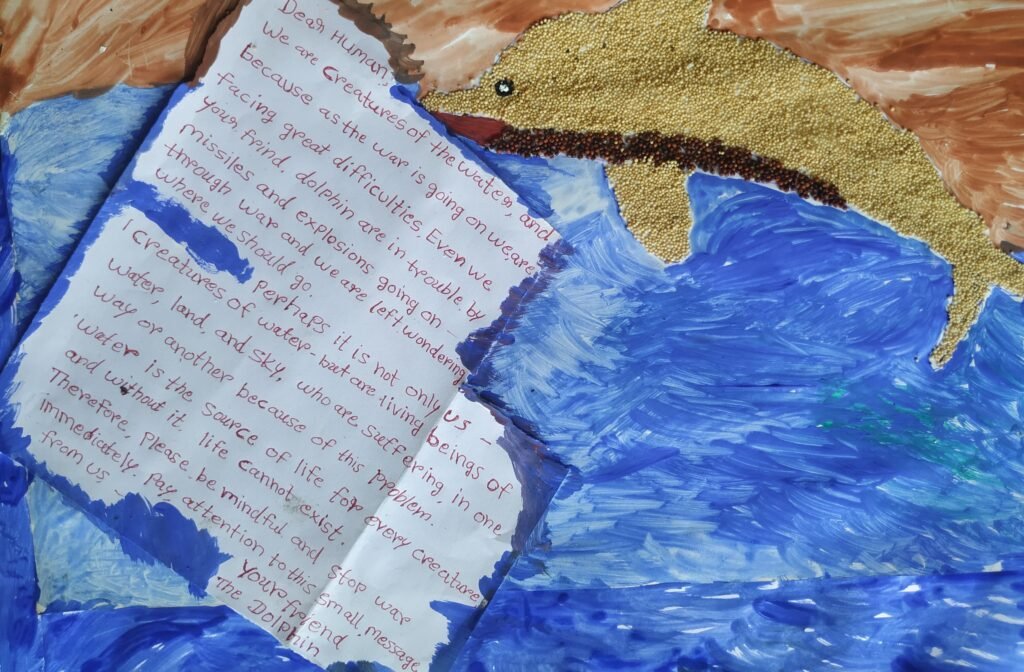 Dear Human,
We are creatures of the water, and
because as the war is going on we are
facing great difficulties. Even we
your, frind, dolphin are in trouble by
missiles and explosions going on -
through war and we are left wondering
where we should go.
perhaps it is not only us -
' creatures of water - but are living beings of
water, land, and sky, who are suffering in one
way or another because of this problem.
'water is the source of life for every creature
and without it life cannot exist.
Therefore, please be mindful and stop war
immediately. pay attention to this small message
from us
Your friend
The Dolphin